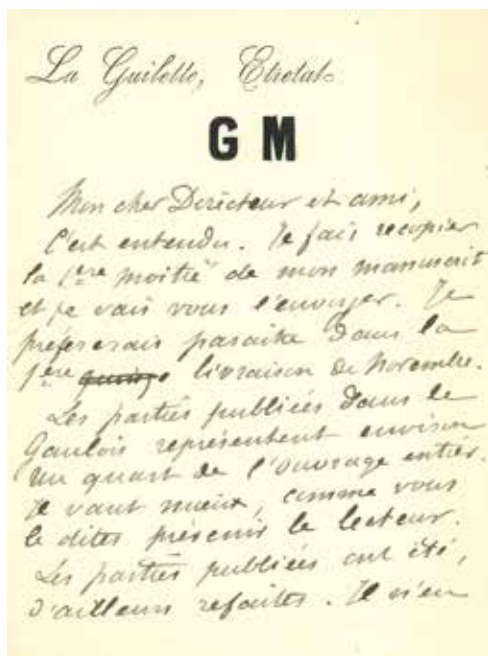 La Guillette, Etretat
G M
Mon cher Directeur et ami,
C'est entendu. Je fais recopier
la 1ère moitié de mon manuscrit
et je vais vous l'envoyer. Je
préférerais paraître dans la
1ère livraison de Novembre.
Les parties publiées dans le
Gaulois représentent environ
un quart de l'ouvrage entier.
Il vaut mieux, comme vous
le dites prévenir le lecteur.
Les parties publiées ont été,
d'ailleurs refaites. Il n'en